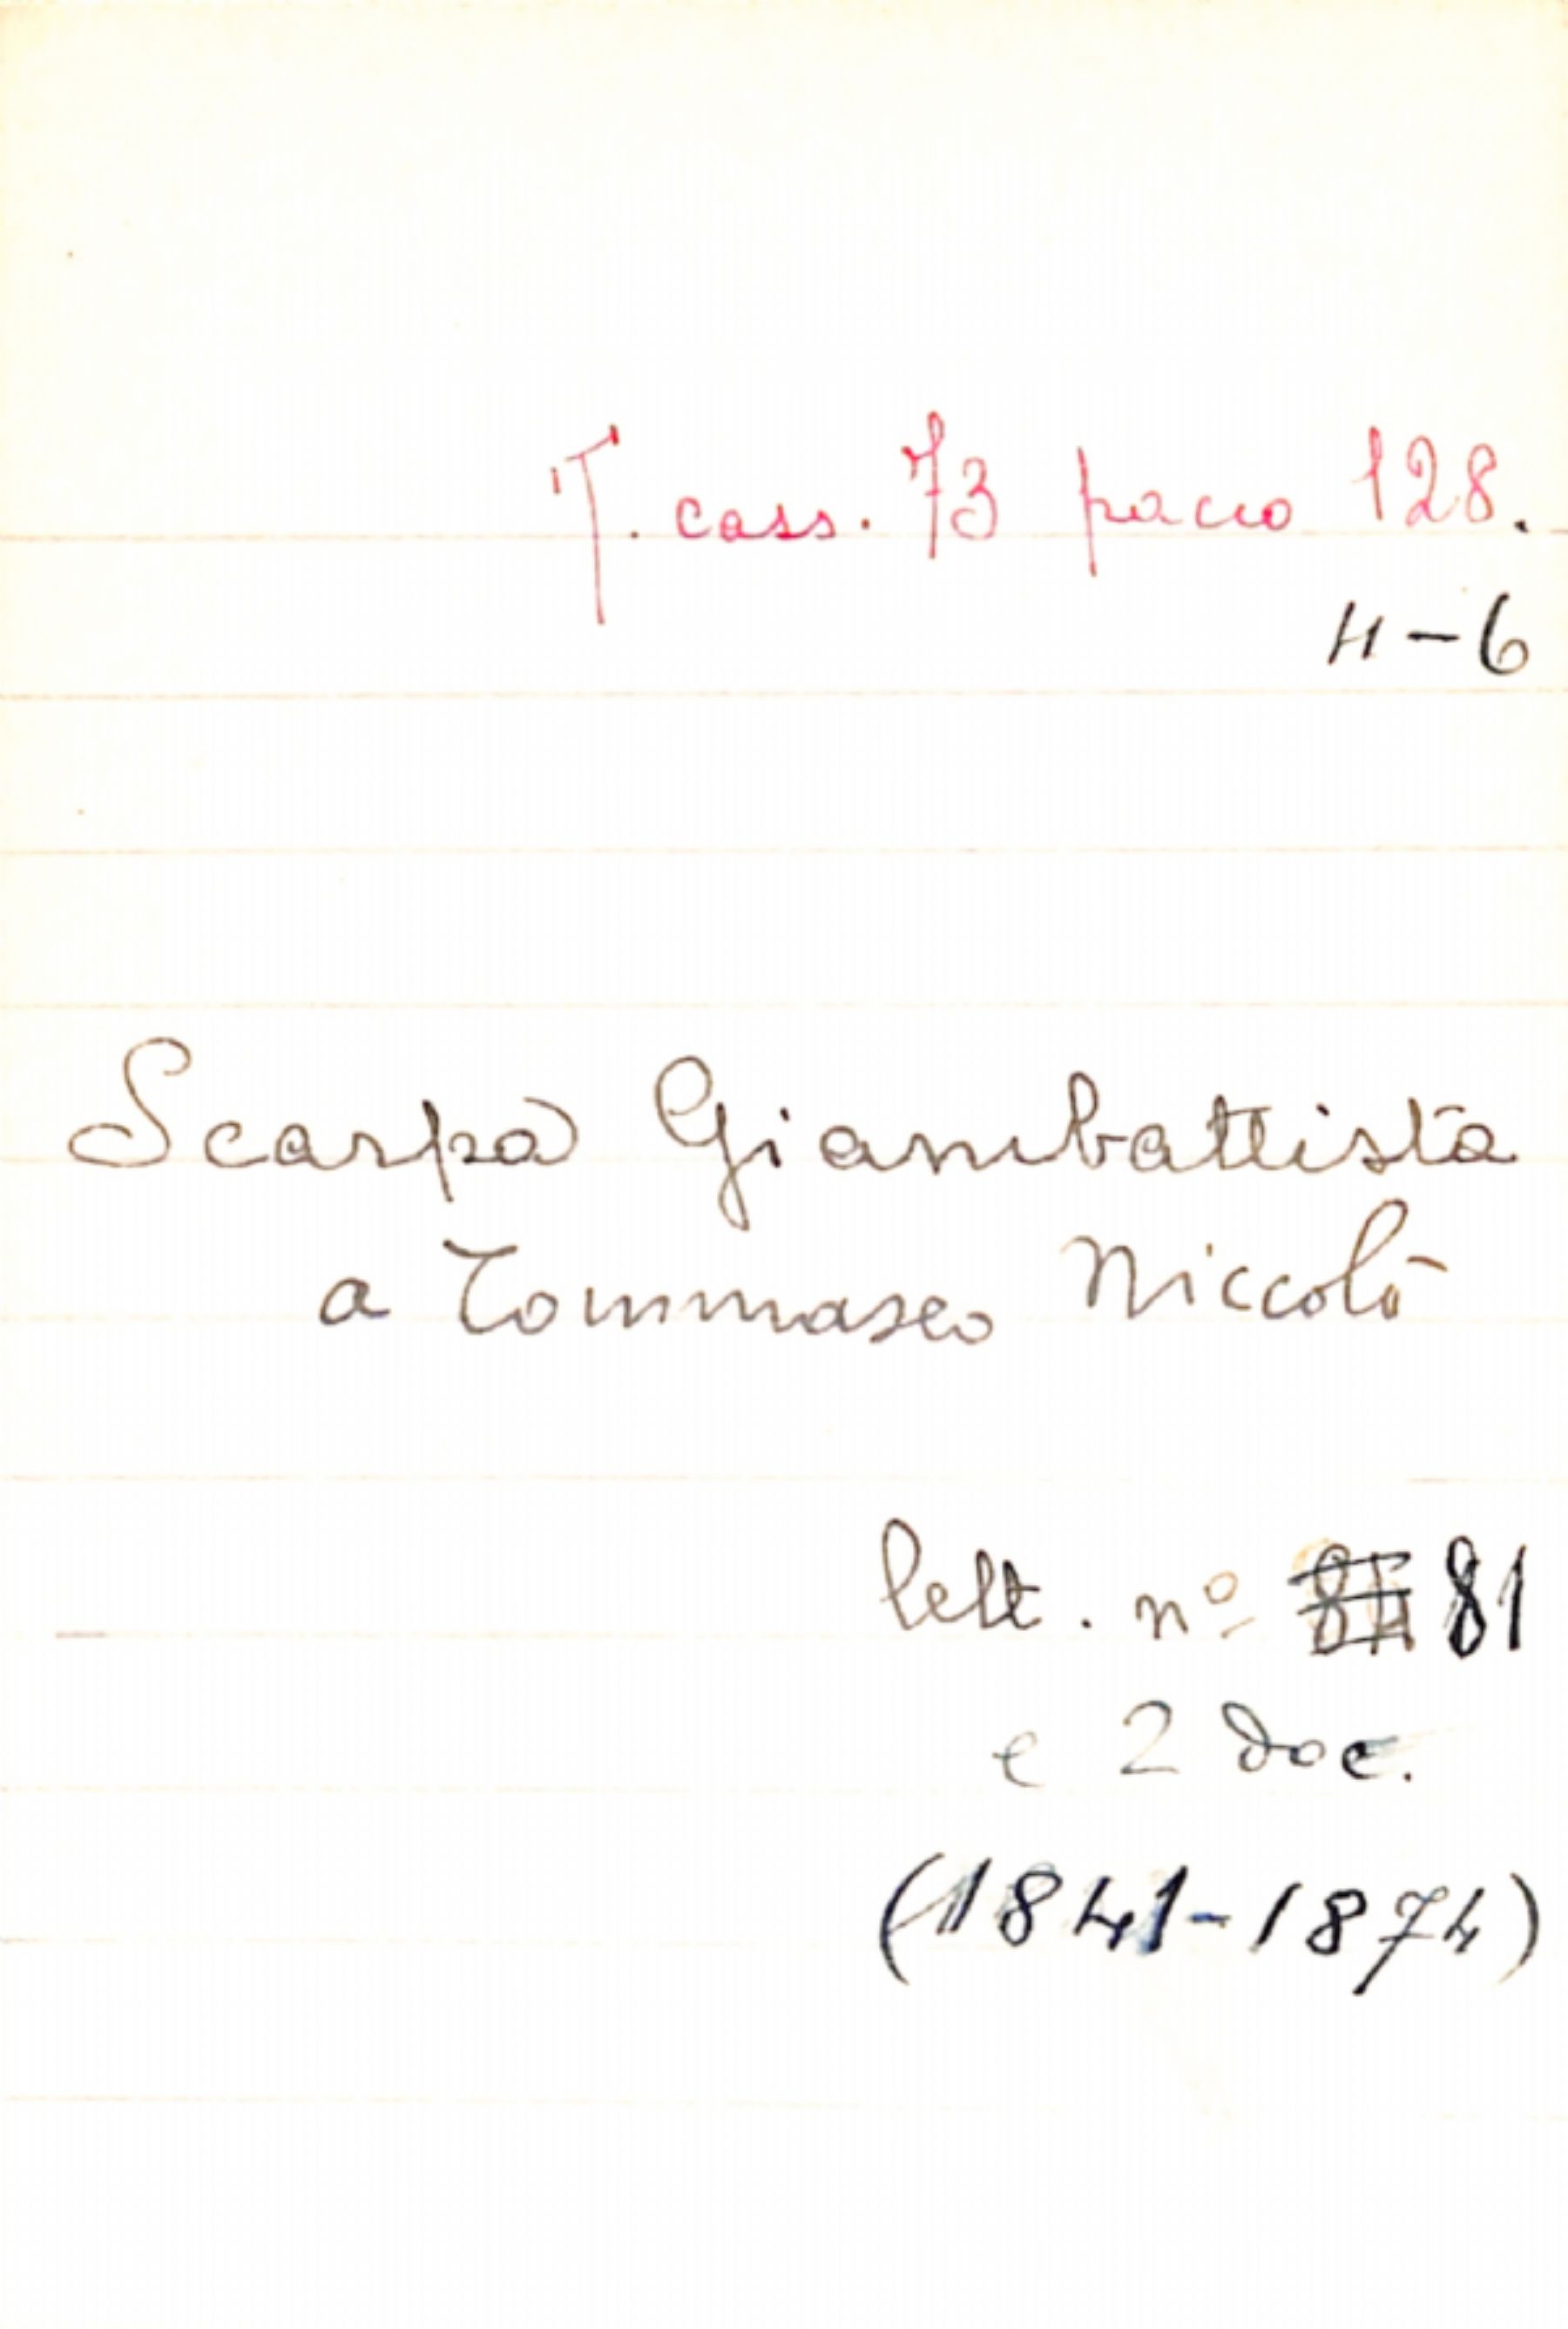 T. cass. 73 pacco 128.
4-6
Scarpa Giambattista
a Tommaseo Niccolò
lett. nº 81
e 2 doc.
(1841-1874)